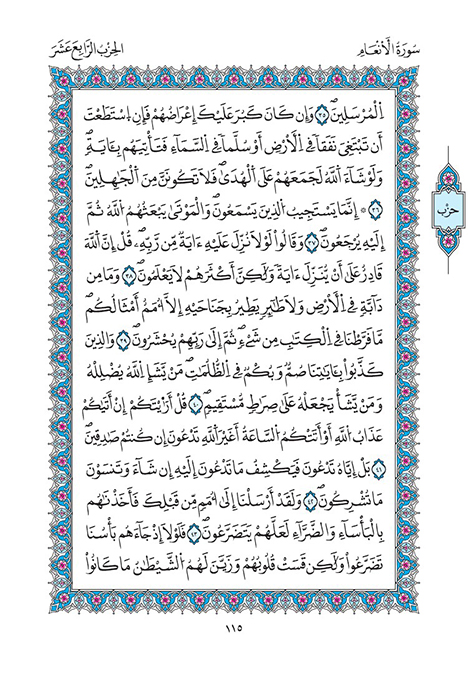 سُورَةُ الْأَنْعَامِ
الحِزْبُ الرَّابِعَ عَشَرَ
اَ۬لْمُرْسَلِينَۖ ٣٥ وَإِن كَانَ كَبُرَ عَلَيْكَ إِعْرَاضُهُمْ فَإِنِ اِ۪سْتَطَعْتَ
أَن تَبْتَغِيَ نَفَقاٗ فِے اِ۬لْأَرْضِ أَوْ سُلَّماٗ فِے اِ۬لسَّمَآءِ فَتَأْتِيَهُم بِـَٔايَةٖۖ
وَلَوْ شَآءَ اَ۬للَّهُ لَجَمَعَهُمْ عَلَى اَ۬لْهُد۪ىٰۖ فَلَا تَكُونَنَّ مِنَ اَ۬لْجَٰهِلِينَۖ
٣٦ ۞ إِنَّمَا يَسْتَجِيبُ اُ۬لذِينَ يَسْمَعُونَۖ وَالْمَوْت۪ىٰ يَبْعَثُهُمُ اُ۬للَّهُ ثُمَّ
إِلَيْهِ يُرْجَعُونَۖ ٣٧ وَقَالُواْ لَوْلَا نُزِّلَ عَلَيْهِ ءَايَةٞ مِّن رَّبِّهِۦۖ قُلْ إِنَّ اَ۬للَّهَ
قَادِرٌ عَلَىٰٓ أَنْ يُّنَزِّلَ ءَايَةٗ وَلَٰكِنَّ أَكْثَرَهُمْ لَا يَعْلَمُونَۖ ٣٨ وَمَا مِن
دَآبَّةٖ فِے اِ۬لْأَرْضِ وَلَا طَٰٓئِرٖ يَطِيرُ بِجَنَاحَيْهِ إِلَّآ أُمَمٌ أَمْثَالُكُمۖ
مَّا فَرَّطْنَا فِے اِ۬لْكِتَٰبِ مِن شَےْءٖۖ ثُمَّ إِلَىٰ رَبِّهِمْ يُحْشَرُونَۖ ٣٩ وَالذِينَ
كَذَّبُواْ بِـَٔايَٰتِنَا صُمّٞ وَبُكْمٞ فِے اِ۬لظُّلُمَٰتِۖ مَنْ يَّشَإِ اِ۬للَّهُ يُضْلِلْهُۖ
وَمَنْ يَّشَأْ يَجْعَلْهُ عَلَىٰ صِرَٰطٖ مُّسْتَقِيمٖۖ ٤٠ قُلْ أَرَٰٓيْتَكُمُۥٓ إِنْ أَت۪ىٰكُمْ
عَذَابُ اُ۬للَّهِ أَوَ اَتَتْكُمُ اُ۬لسَّاعَةُ أَغَيْرَ اَ۬للَّهِ تَدْعُونَ إِن كُنتُمْ صَٰدِقِينَۖ
٤١ بَلْ إِيَّاهُ تَدْعُونَ فَيَكْشِفُ مَا تَدْعُونَ إِلَيْهِ إِن شَآءَ وَتَنسَوْنَ
مَا تُشْرِكُونَۖ ٤٢ وَلَقَدْ أَرْسَلْنَآ إِلَىٰٓ أُمَمٖ مِّن قَبْلِكَ فَأَخَذْنَٰهُم
بِالْبَأْسَآءِ وَالضَّرَّآءِ لَعَلَّهُمْ يَتَضَرَّعُونَۖ ٤٣ فَلَوْلَآ إِذْ جَآءَهُم بَأْسُنَا
تَضَرَّعُواْ وَلَٰكِن قَسَتْ قُلُوبُهُمْ وَزَيَّنَ لَهُمُ اُ۬لشَّيْطَٰنُ مَا كَانُواْ
حزب
١١٥